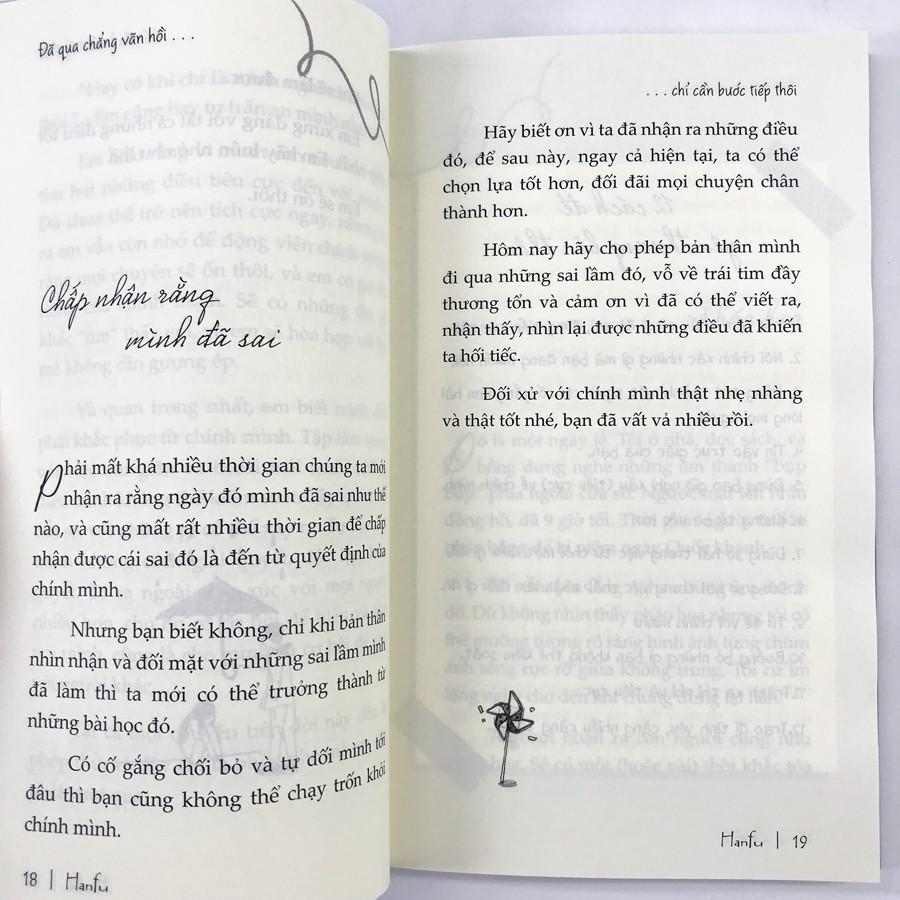 Đã qua chẳng vãn hồi . . .
Chấp nhận rằng
mình đã sai
Phải mất khá nhiều thời gian chúng ta mới
nhận ra rằng ngày đó mình đã sai như thế
nào, và cũng mất rất nhiều thời gian để chấp
nhận được cái sai đó là đến từ quyết định của
chính mình.
Nhưng bạn biết không, chỉ khi bản thân
nhìn nhận và đối mặt với những sai lầm mình
đã làm thì ta mới có thể trưởng thành từ
những bài học đó.
Có cố gắng chối bỏ và tự dối mình tới
đâu thì bạn cũng không thể chạy trốn khỏi
chính mình.
18 | Hanfu
. . . chỉ cần bước tiếp thôi
Hãy biết ơn vì ta đã nhận ra những điều
đó, để sau này, ngay cả hiện tại, ta có thể
chọn lựa tốt hơn, đối đãi mọi chuyện chân
thành hơn.
Hôm nay hãy cho phép bản thân mình
đi qua những sai lầm đó, vỗ về trái tim đầy
thương tổn và cảm ơn vì đã có thể viết ra,
nhận thấy, nhìn lại được những điều đã khiến
ta hối tiếc.
Đối xử với chính mình thật nhẹ nhàng
và thật tốt nhé, bạn đã vất vả nhiều rồi.
Hanfu | 19